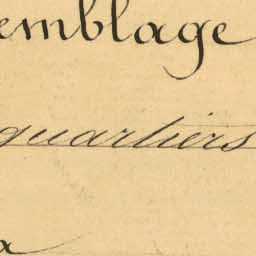 emblage
quartiers